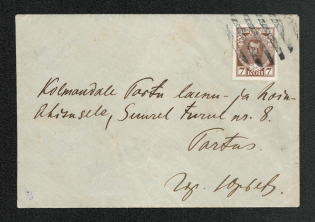 7 КОП 7
Kolmandale Tartu laenu- ja hoiu-
ühisusele, Suurel turul nr. 8.
Tartus.
Гор. Юрьев.